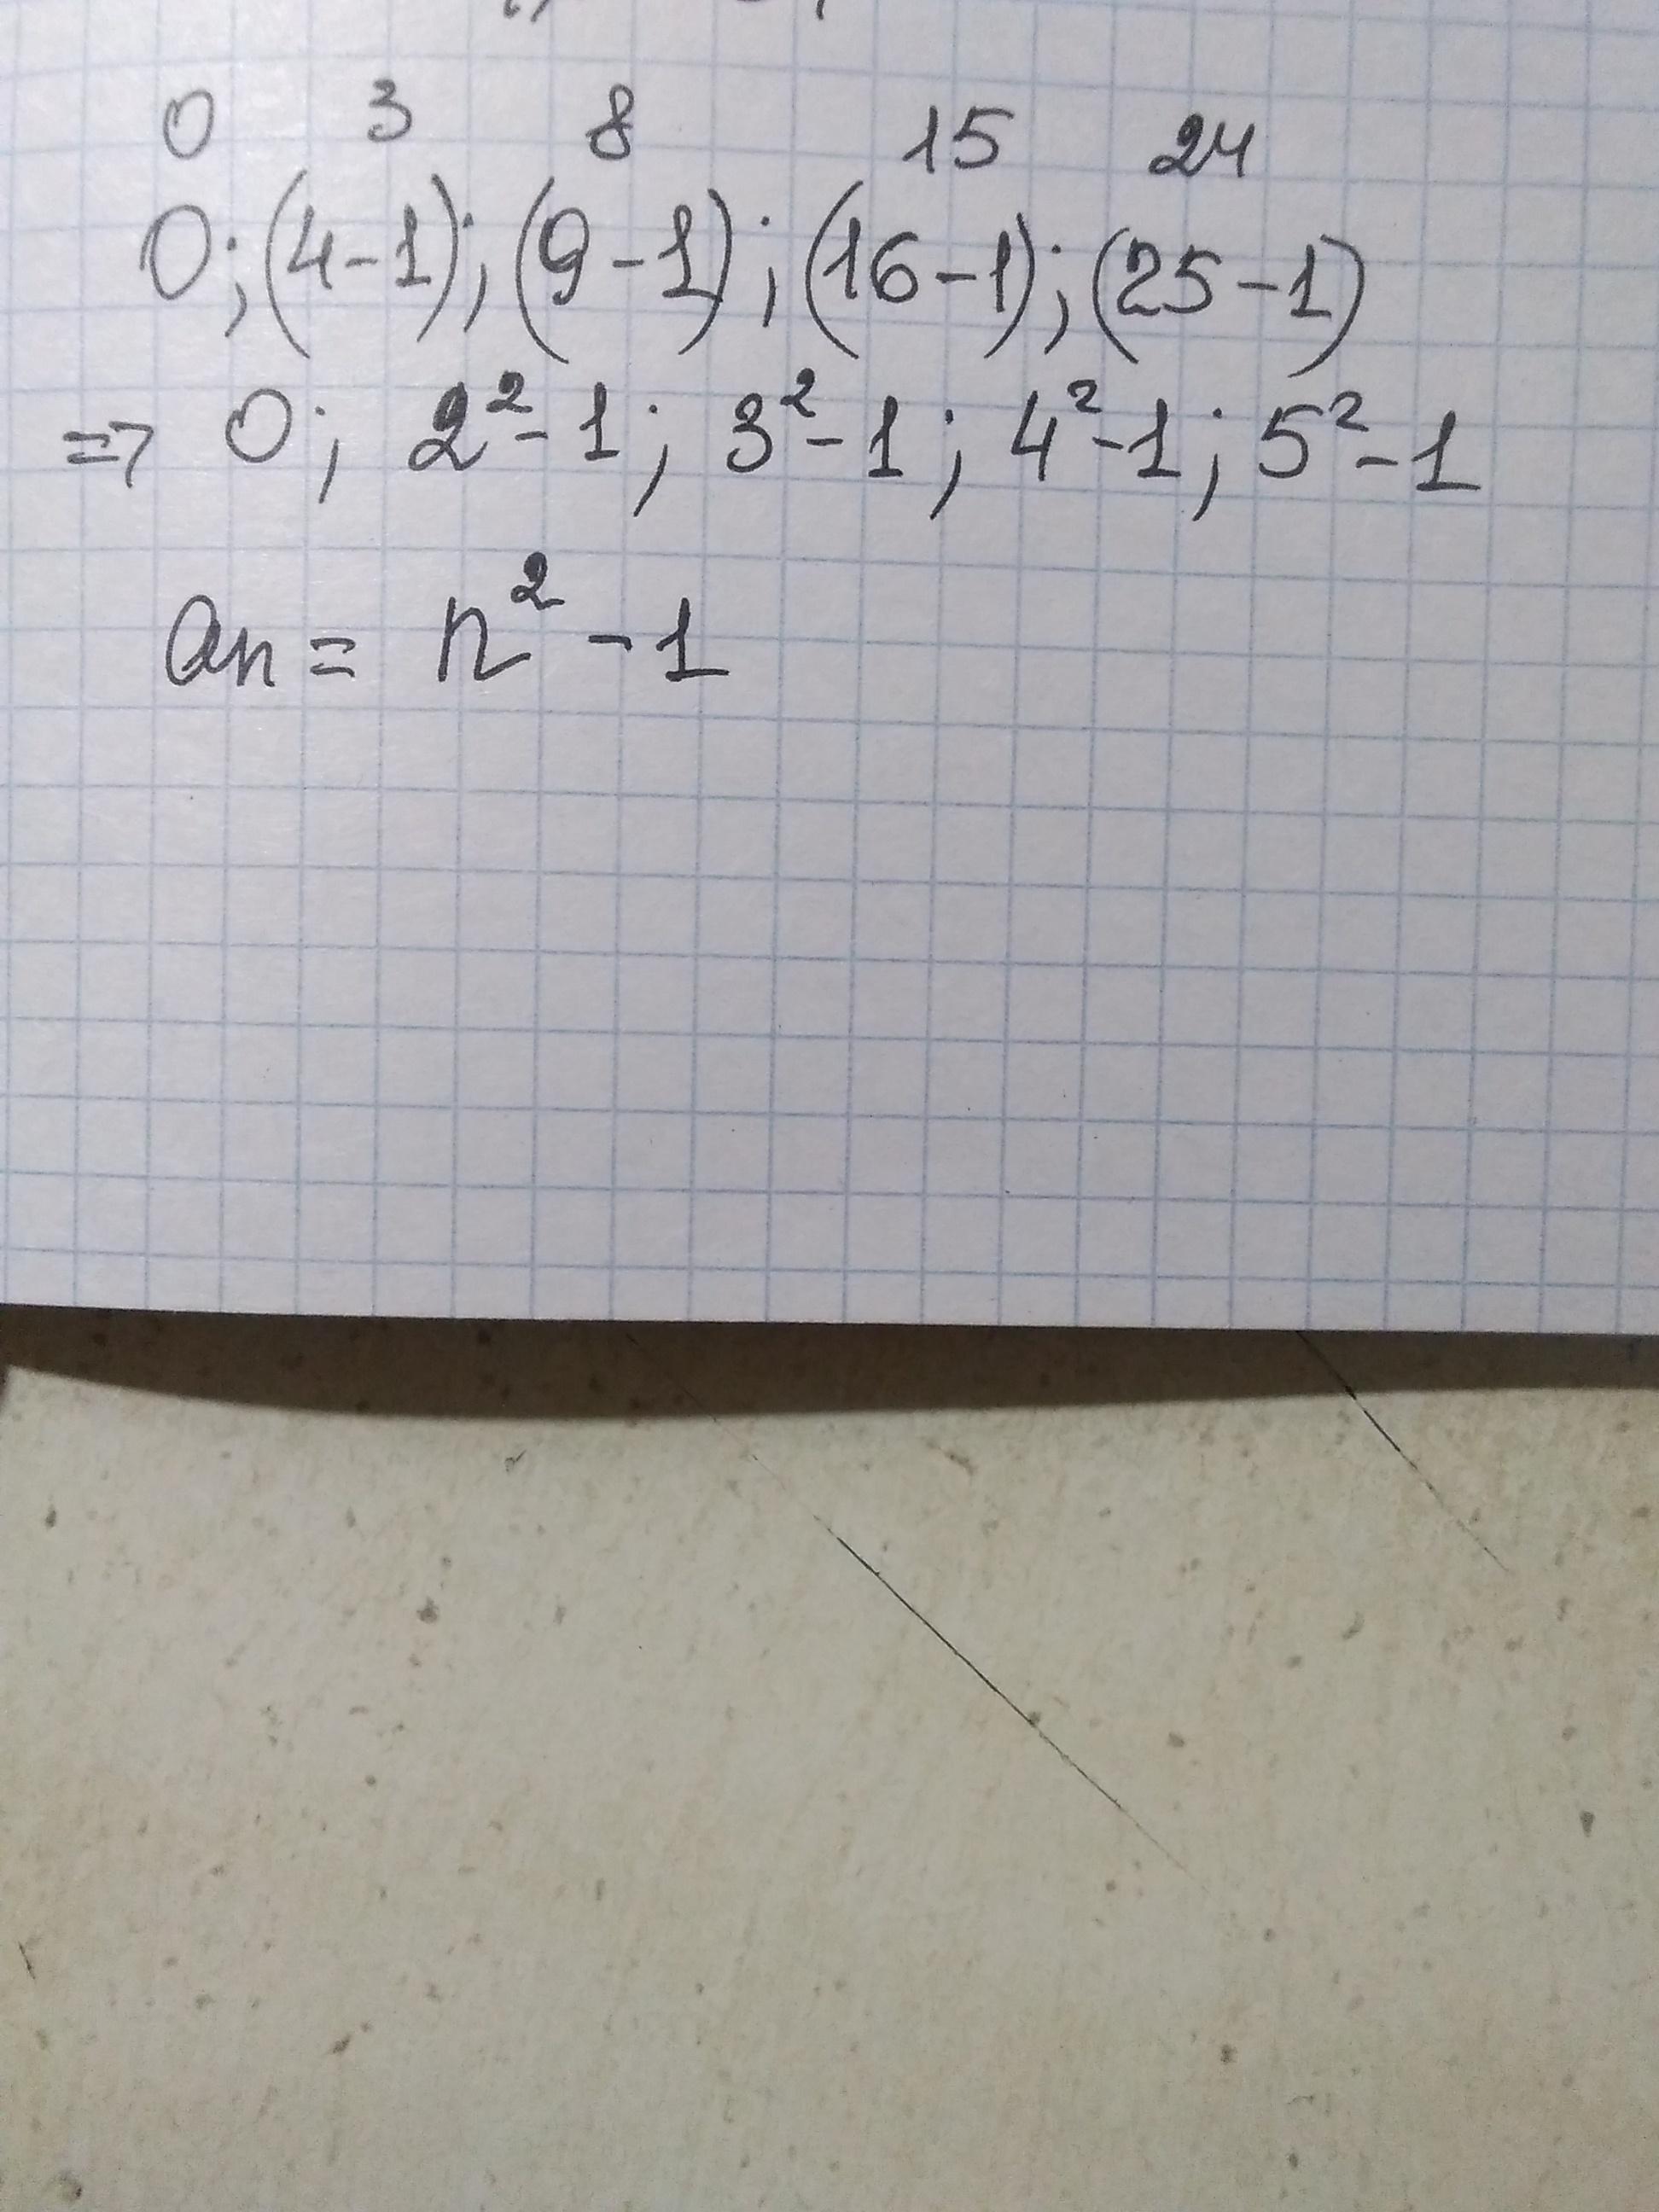 0 3 8 15 24
0; (4-1); (9-1); (16-1); (25-1)
=> 0; 2²-1; 3²-1; 4²-1; 5²-1
an = n²-1